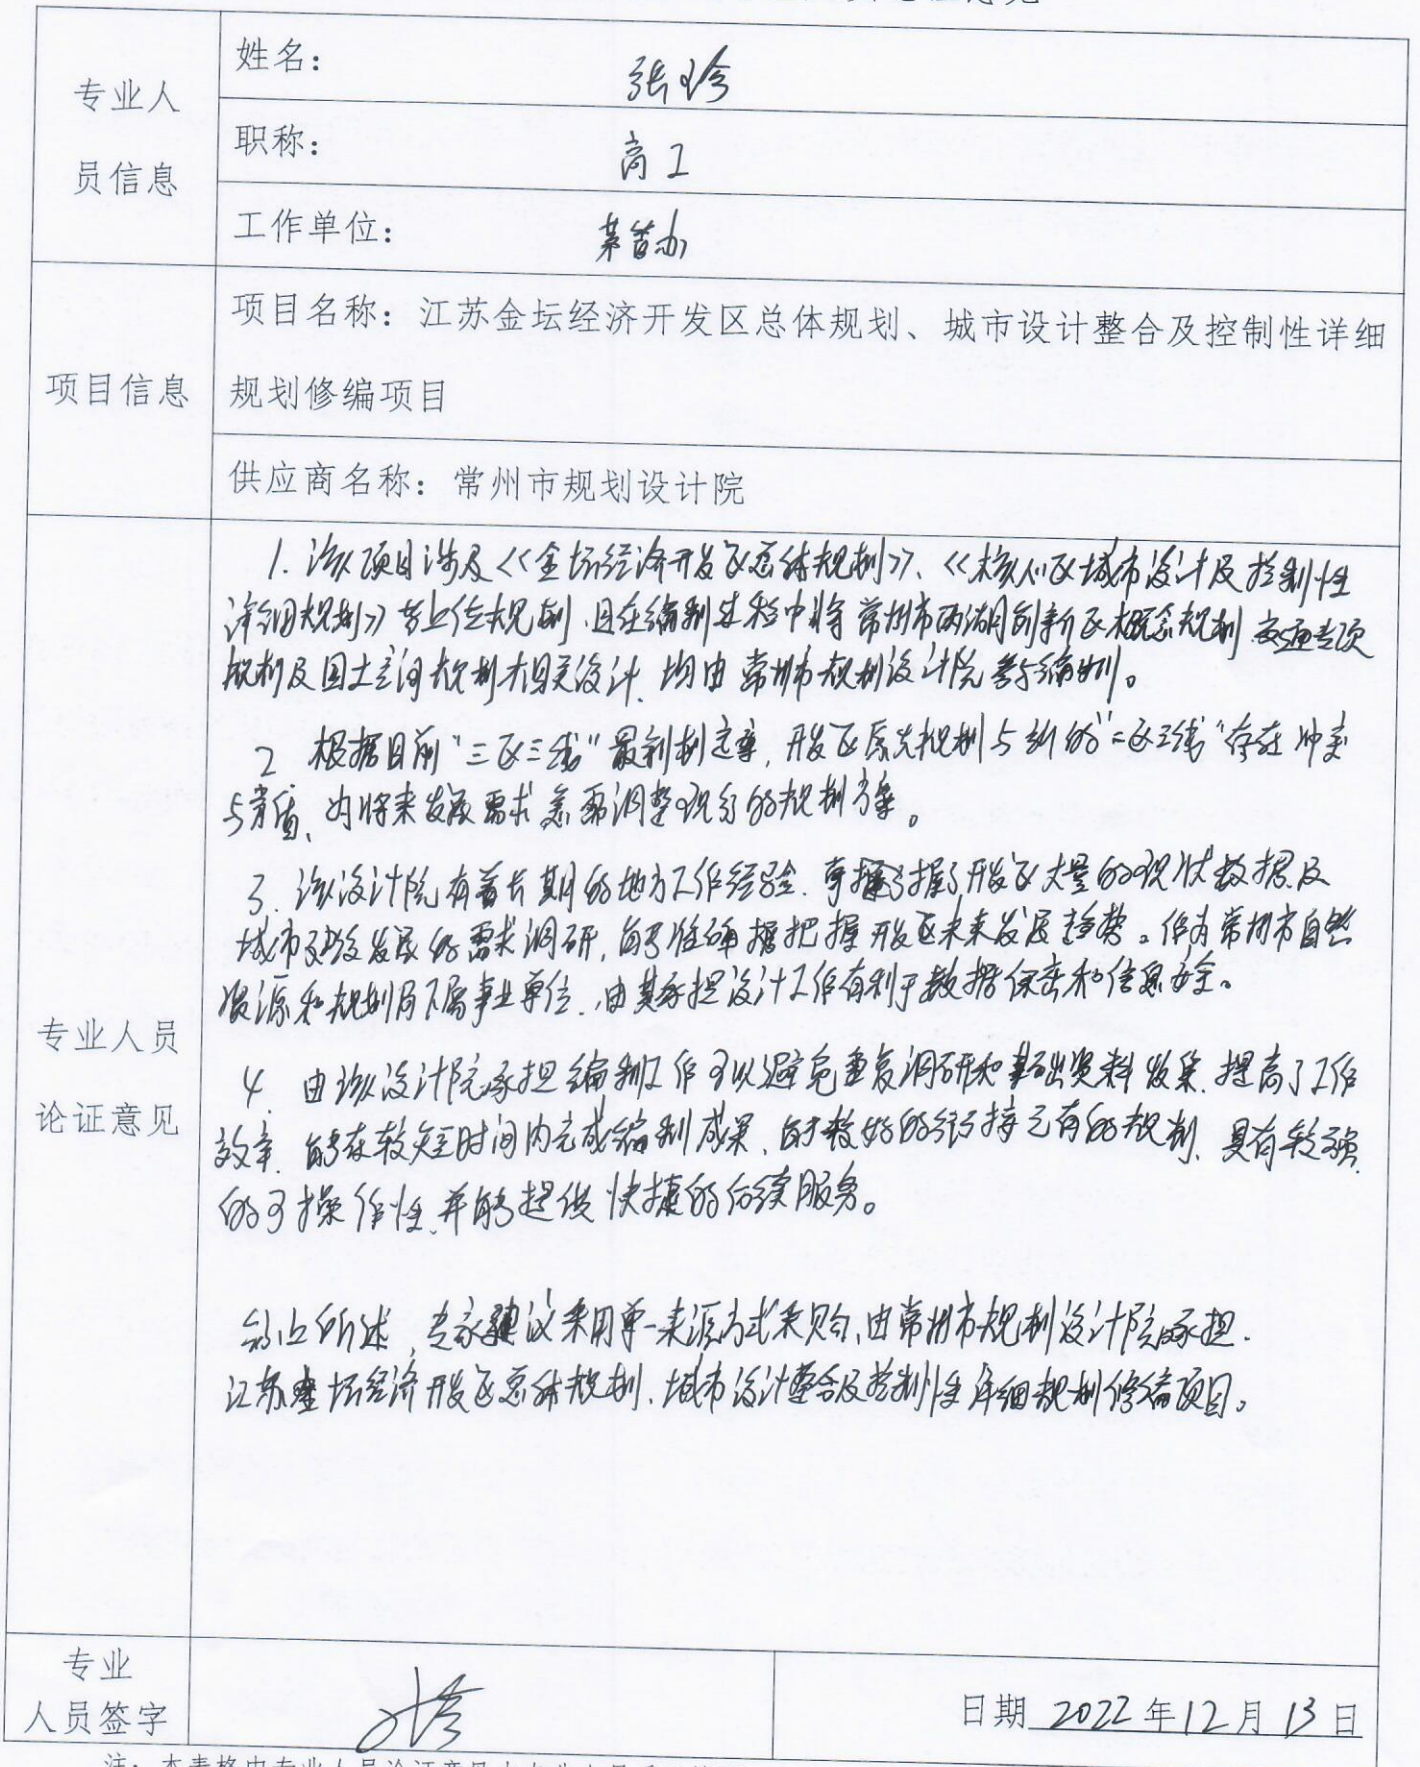 专业人
员信息
姓名：
张珍
职称：
高工
工作单位：
茅管办
项目信息
项目名称：江苏金坛经济开发区总体规划、城市设计整合及控制性详细
规划修编项目
供应商名称：常州市规划设计院
专业人员
论证意见
1. 该项目涉及《金坛经济开发区总体规划》、《核心区城市设计及控制性
详细规划》等上位规划，且在编制过程中将常州市两湖创新区概念规划、交通专项
规划及国土空间规划相关设计，均由常州市规划设计院参与编制。
2 根据目前“三区三线”最新划定案，开发区原先规划与新的“三区三线”存在冲突
与矛盾、为将来发展需求急需调整现有的规划方案。
3. 该设计院有着长期的地方工作经验，掌握了开发区大量的现状数据及
城市发展的需求调研，能够准确把握开发区未来发展趋势。作为常州市自然
资源和规划局下属事业单位，由其承担设计工作有利于数据保密和信息安全。
4. 由该设计院承担编制工作可以避免重复调研和基础资料收集，提高了工作
效率，能在较短时间内完成编制成果，能较好的衔接已有的规划，具有较强
的可操作性，并能提供快捷的后续服务。
综上所述，专家建议采用单一来源方式采购，由常州市规划设计院承担
江苏金坛经济开发区总体规划、城市设计整合及控制性详细规划修编项目。
专业
人员签字
日期 2022年12月13日